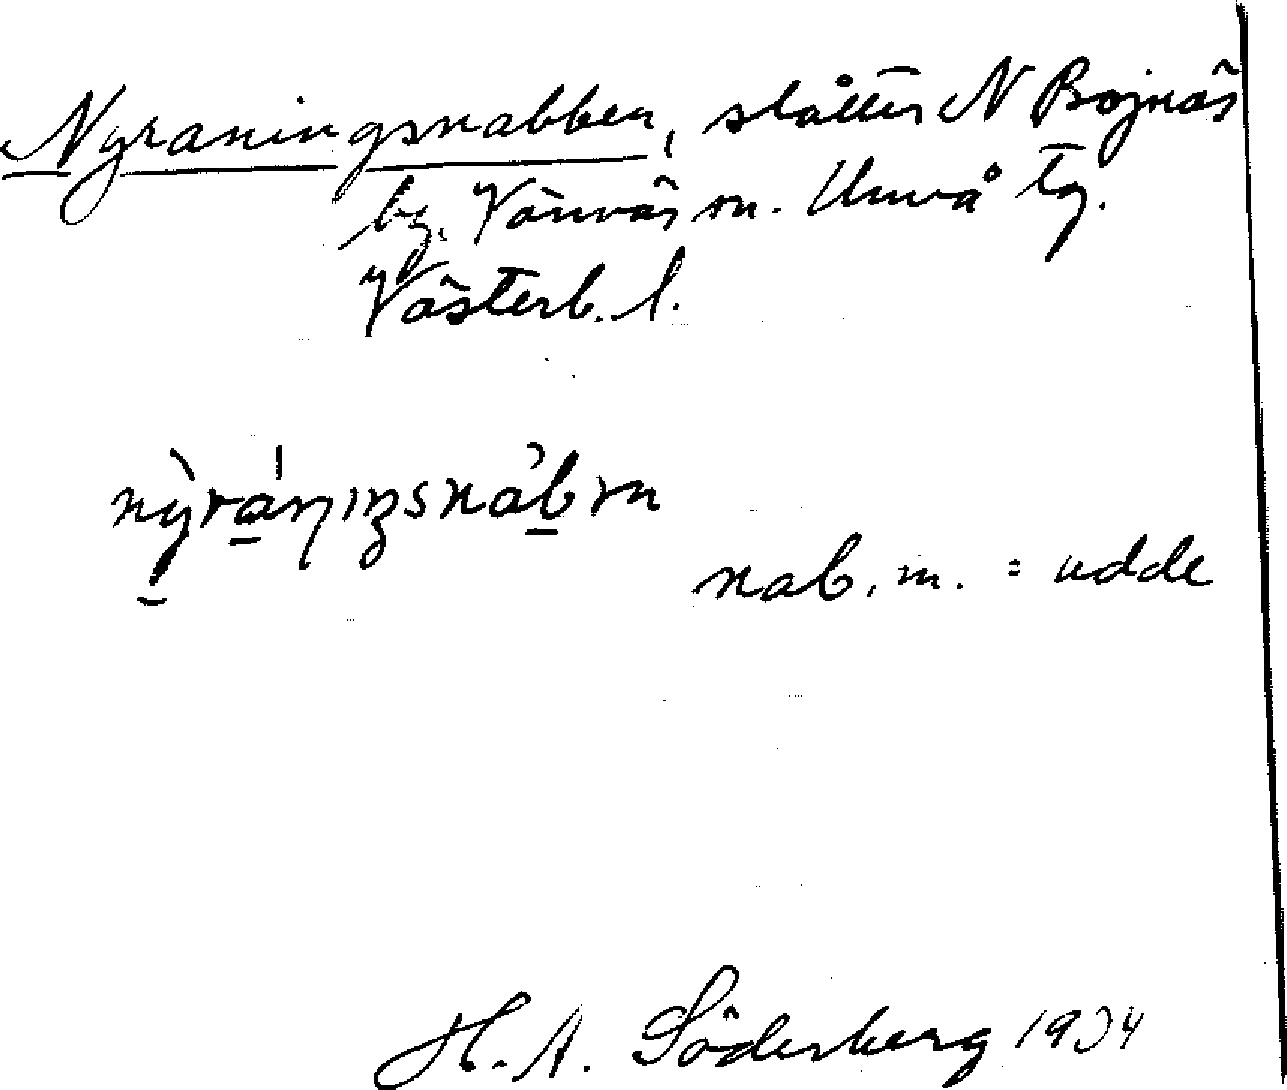 Nyraningsnabben, slåtter N Bojnäs
by. Vännäs sn. Umeå tg.
Västerb. l.
nab, m. = udde
H. A. Söderberg 1934